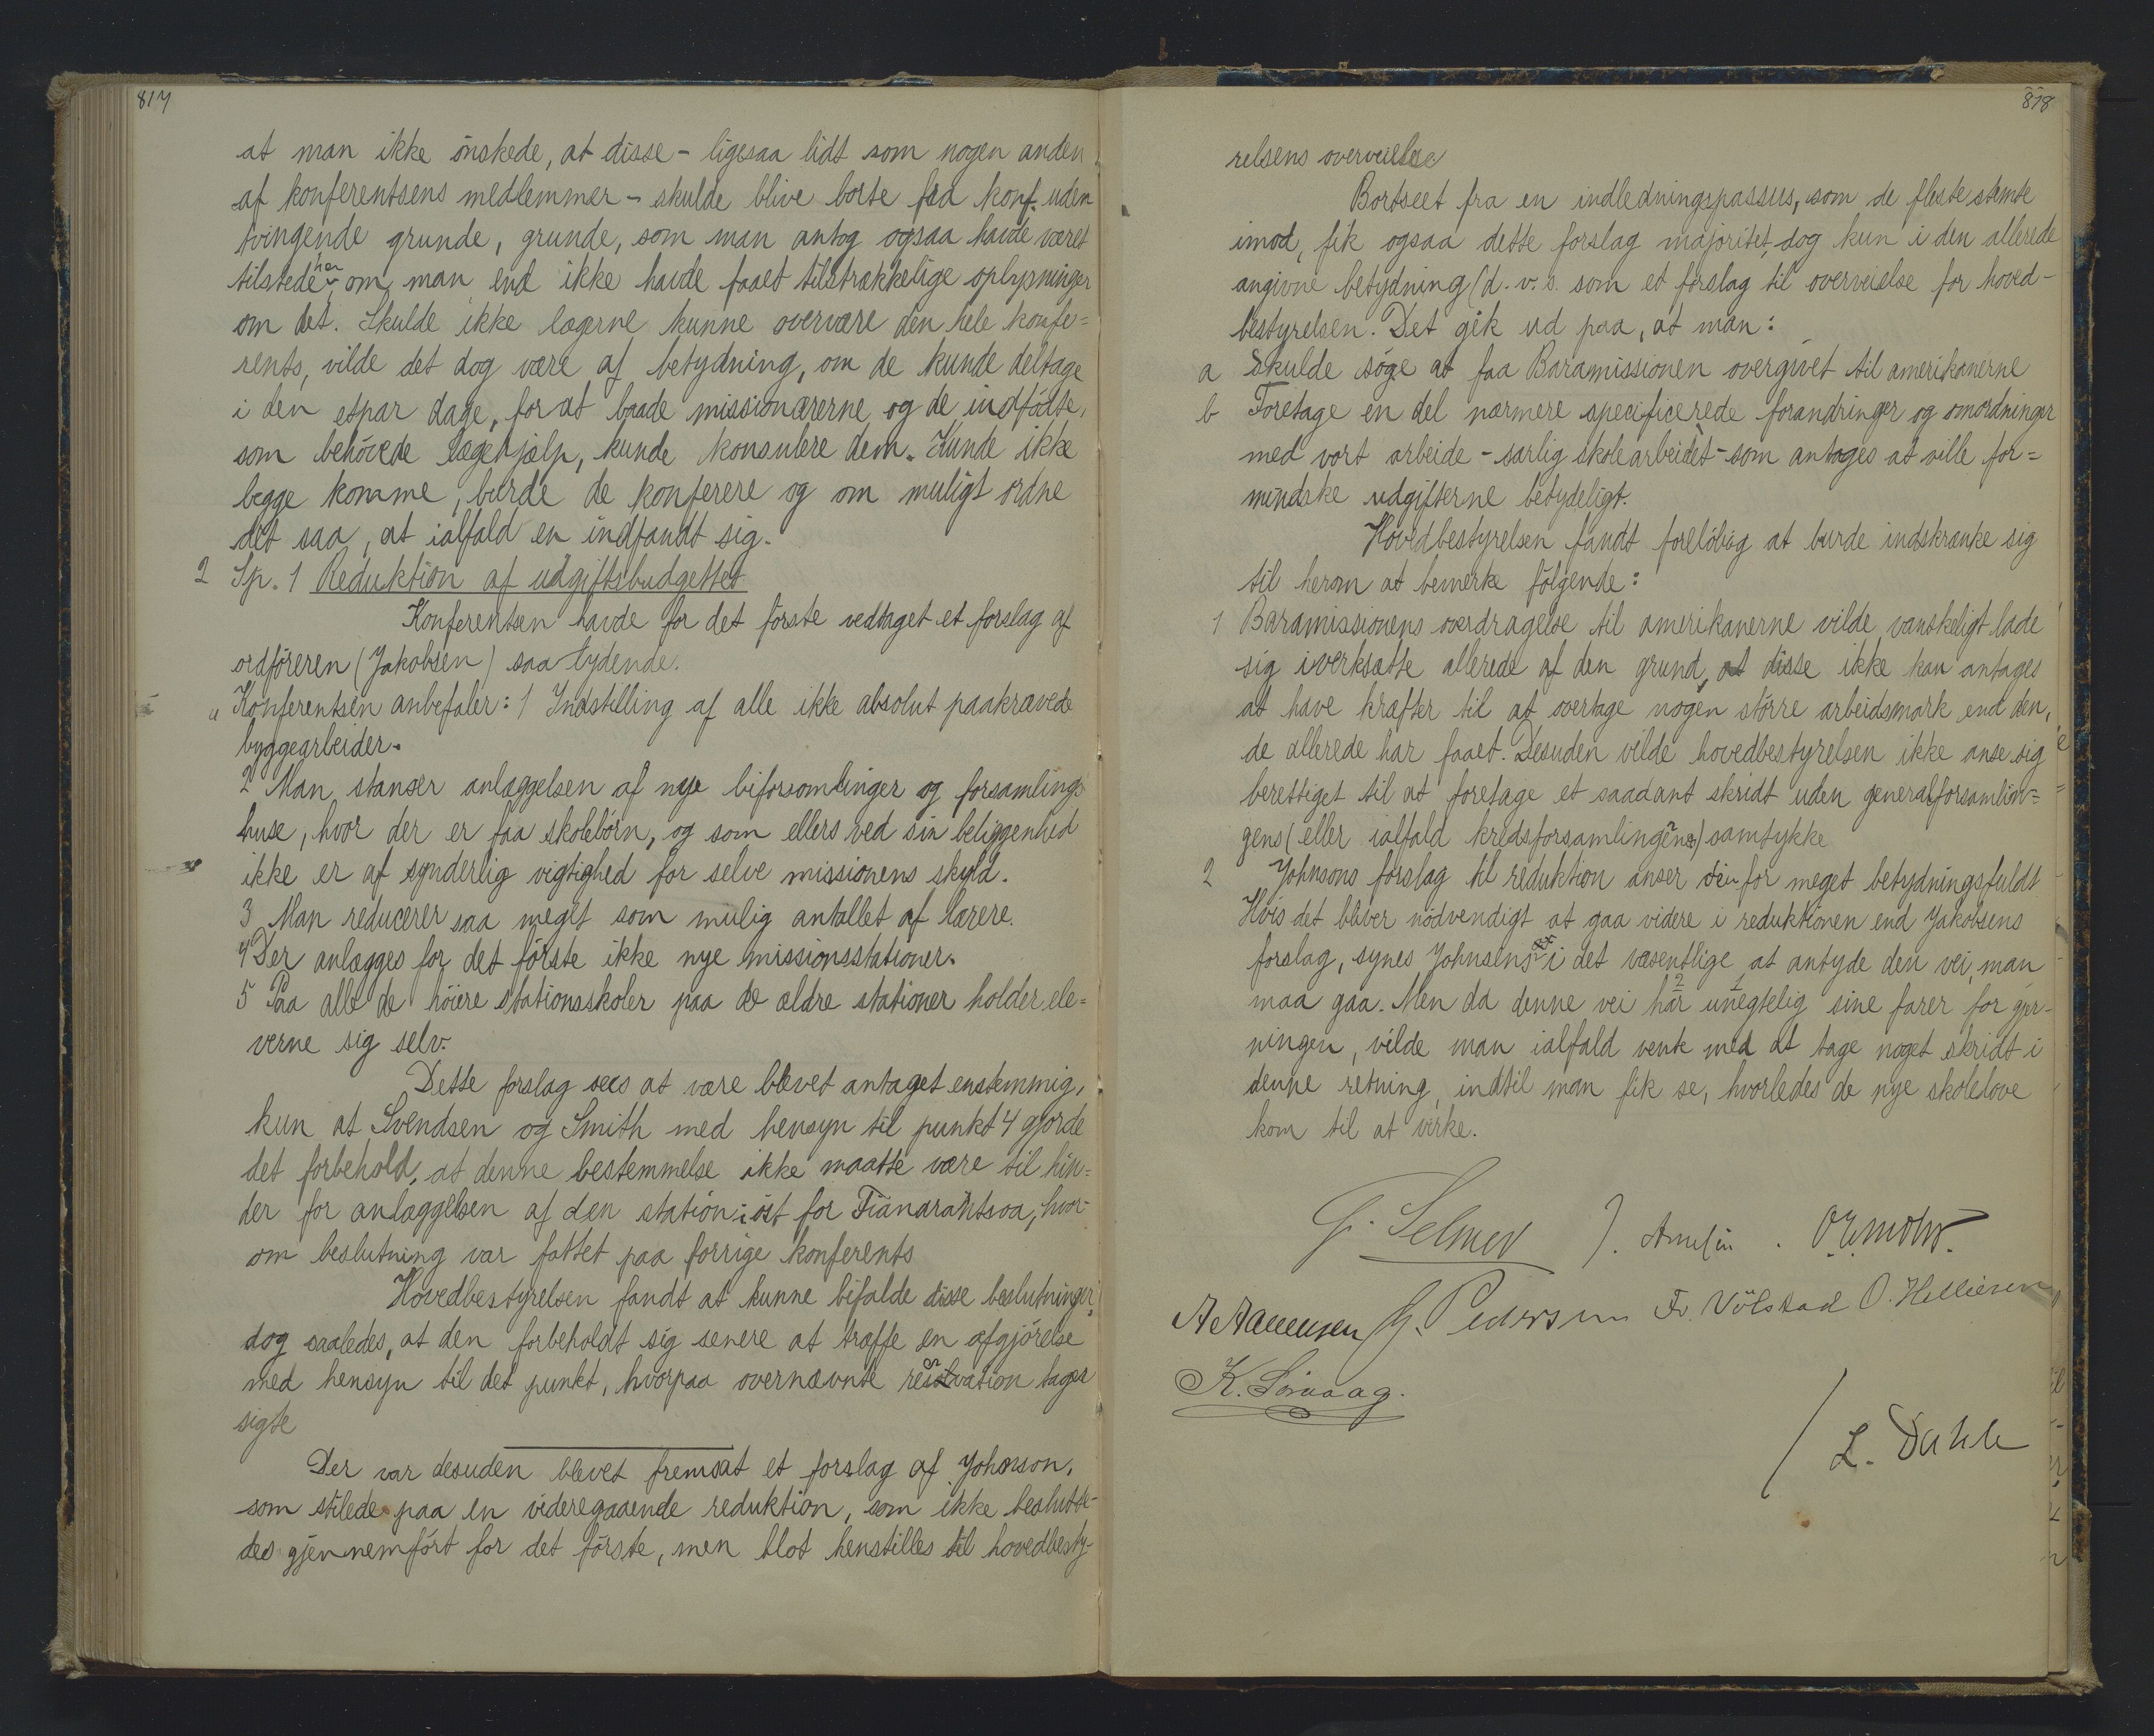 817
at man ikke önskede, at disse - ligesaa lidt som nogen anden
af konferentsens medlemmer - skulde blive borte fra konf. uden
tvingende grunde, grunde, som man antog ogsaa havde været
tilstede her, om man end ikke havde faaet tilstrækkelige oplysninger
om det. Skulde ikke lægerne kunne overvære den hele konfe=
rents, vilde det dog være af betydning, om de kunde deltage
i den etpar dage, forat baade missionærerne og de indfödte,
som behövede lægehjælp, kunde konsulere dem. Kunde ikke
begge komme, burde de konferere og om muligt ordne
det saa, at ialfald en indfandt sig.
2 Sp. 1 Reduktion af udgiftsbudgettet
Konferentsen havde for det förste vedtaget et forslag af
ordföreren (Jakobsen) saa lydende.
"Konferentsen anbefaler: 1 Indstilling af alle ikke absolut paakrævede
byggearbeider.
2 Man stanser anlæggelsen af nye biforsamlinger og forsamlings
huse, hvor der er faa skolebörn, og som ellers ved sin beliggenhed
ikke er af synderlig vigtighed for selve missionens skyld.
3 Man reducerer saa meget som mulig antallet af lærere.
4 Der anlægges for det förste ikke nye missionsstationer.
5 Paa alle de höiere stationsskoler paa de ældre stationer holder ele=
verne sig selv.
Dette forslag sees at være blevet antaget enstemmig,
kun at Svendsen og Smith med hensyn til punkt 4 gjorde
det forbehold, at denne bestemmelse ikke maatte være til hin=
der for anlæggelsen af den station i öst for Fianarantsoa, hvor-
om beslutning var fattet paa forrige konferents
Hovedbestyrelsen fandt at kunne bifalde disse beslutninger,
dog saaledes, at den forbeholdt sig senere at træffe en afgjörelse
med hensyn til det punkt, hvorpaa overnævnte reservation tager
sigte
Der var desuden blevet fremsat et forslag af Johnson,
som stilede paa en videregaaende reduktion, som ikke beslutte-
des gjennemfört for det förste, men blot henstilles til hovedbesty-
818
relsens overveielse
Bortseet fra en indledningspassus, som de fleste stemte
imod, fik ogsaa dette forslag majoritet, dog kun i den allerede
angivne betydning (d. v. s. som et forslag til overveielse for hoved-
bestyrelsen. Det gik ud paa, at man:
a Skulde söge at faa Baramissionen overgivet til amerikanerne
b Foretage en del nærmere specificerede forandringer og omordninger
med vort arbeide - særlig skolearbeidet - som antages at ville for=
mindske udgifterne betydeligt.
Hovedbestyrelsen fandt forelöbig at burde indskrænke sig
til herom at bemerke fölgende:
1 Baramissionens overdragelse til amerikanerne vilde vanskeligt lade
sig iverksætte allerede af den grund, at disse ikke kan antages
at have kræfter til at overtage nogen större arbeidsmark end den,
de allerede har faaet. Desuden vilde hovedbestyrelsen ikke anse sig
berettiget til at foretage et saadant skridt uden generalforsamlin=
gens (eller ialfald kredsforsamlingens) samtykke
2 Johnsons forslag til reduktion anser den for meget betydningsfuldt
Hvis det bliver nödvendigt at gaa videre i reduktionen end Jakobsens
forslag, synes Johnsens i det væsentlige at antyde den vei, man
maa gaa. Men da denne vei har unegtelig sine farer for gjer-
ningen, vilde man ialfald vente med at tage noget skridt i
denne retning, indtil man fik se, hvorledes de nye skolelove
kom til at virke.
G. Selmer J. Amlin
A Aanensen G. Pedersen Fr. Völstad O. Helliesen
K. Lönaag.
L. Dahle